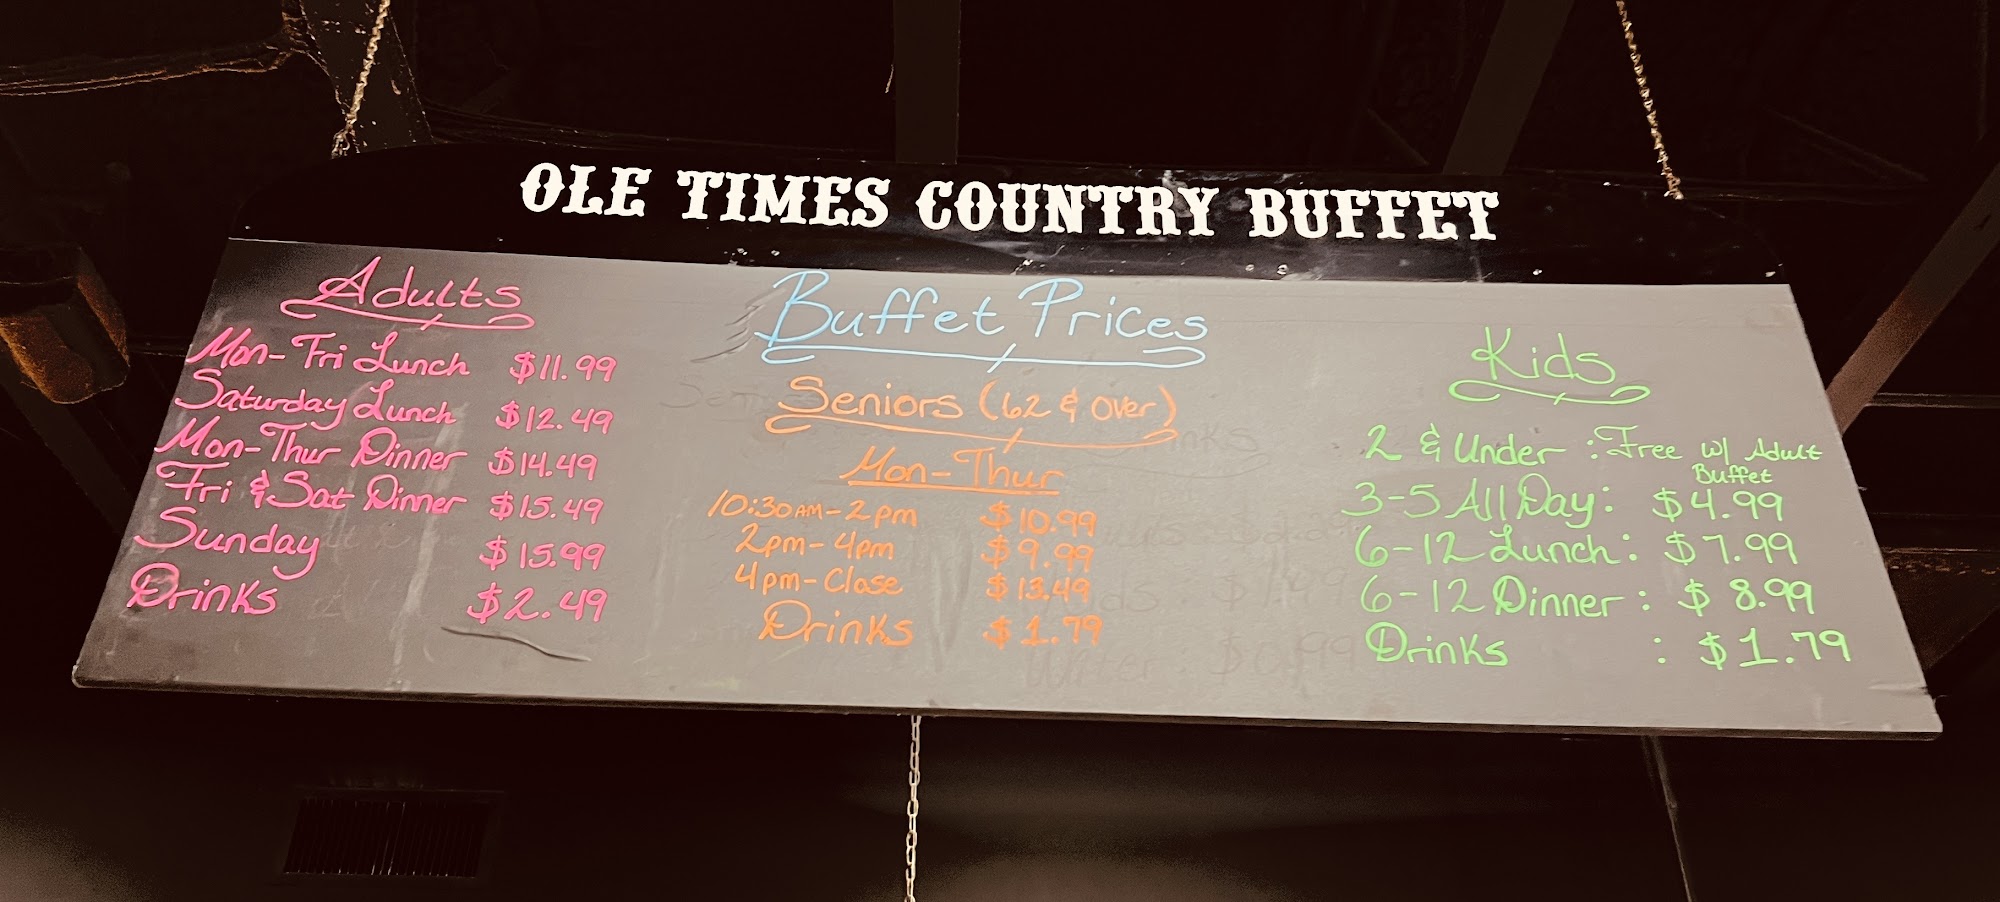 OLE TIMES COUNTRY BUFFET
Buffet Prices
Adults
Mon-Fri Lunch $11.99
Saturday Lunch $12.49
Mon-Thur Dinner $14.49
Fri & Sat Dinner $15.49
Sunday $15.99
Drinks $2.49
Seniors (62 & over)
Mon-Thur
10:30AM-2pm $10.99
2pm-4pm $9.99
4pm-Close $13.49
Drinks $1.79
Kids
2 & Under : Free w/ Adult
Buffet
3-5 All Day: $4.99
6-12 Lunch: $7.99
6-12 Dinner: $8.99
Drinks : $1.79